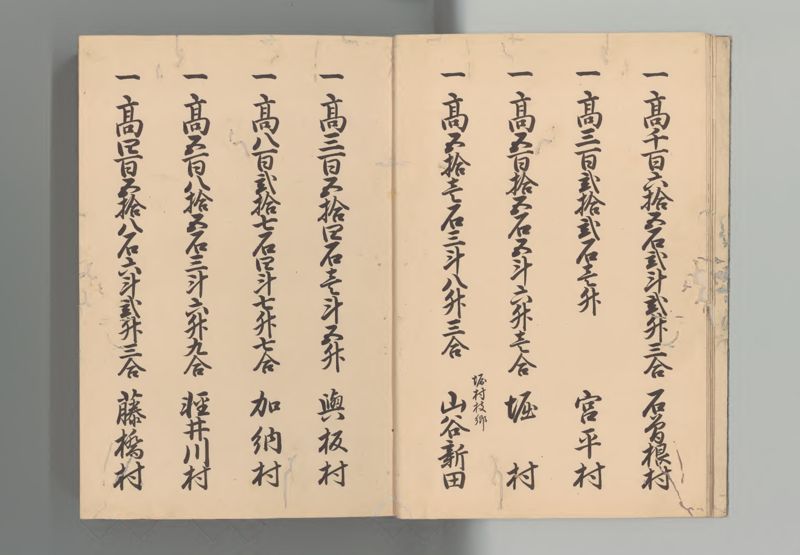 一 高千百六拾五石弐斗弐升三合 石曽根村
一 高三百弐拾弐石壱升 宮平村
一 高五百拾五石五斗六升壱合 堀村
堀村枝郷
一 高五拾壱石三斗八升三合 山谷新田
一 高三百五拾四石壱斗五升 與板村
一 高八百弐拾七石四斗七升七合 加納村
一 高五百八拾五石三斗六升九合 軽井川村
一 高四百五拾八石六斗弐升三合 藤橋村